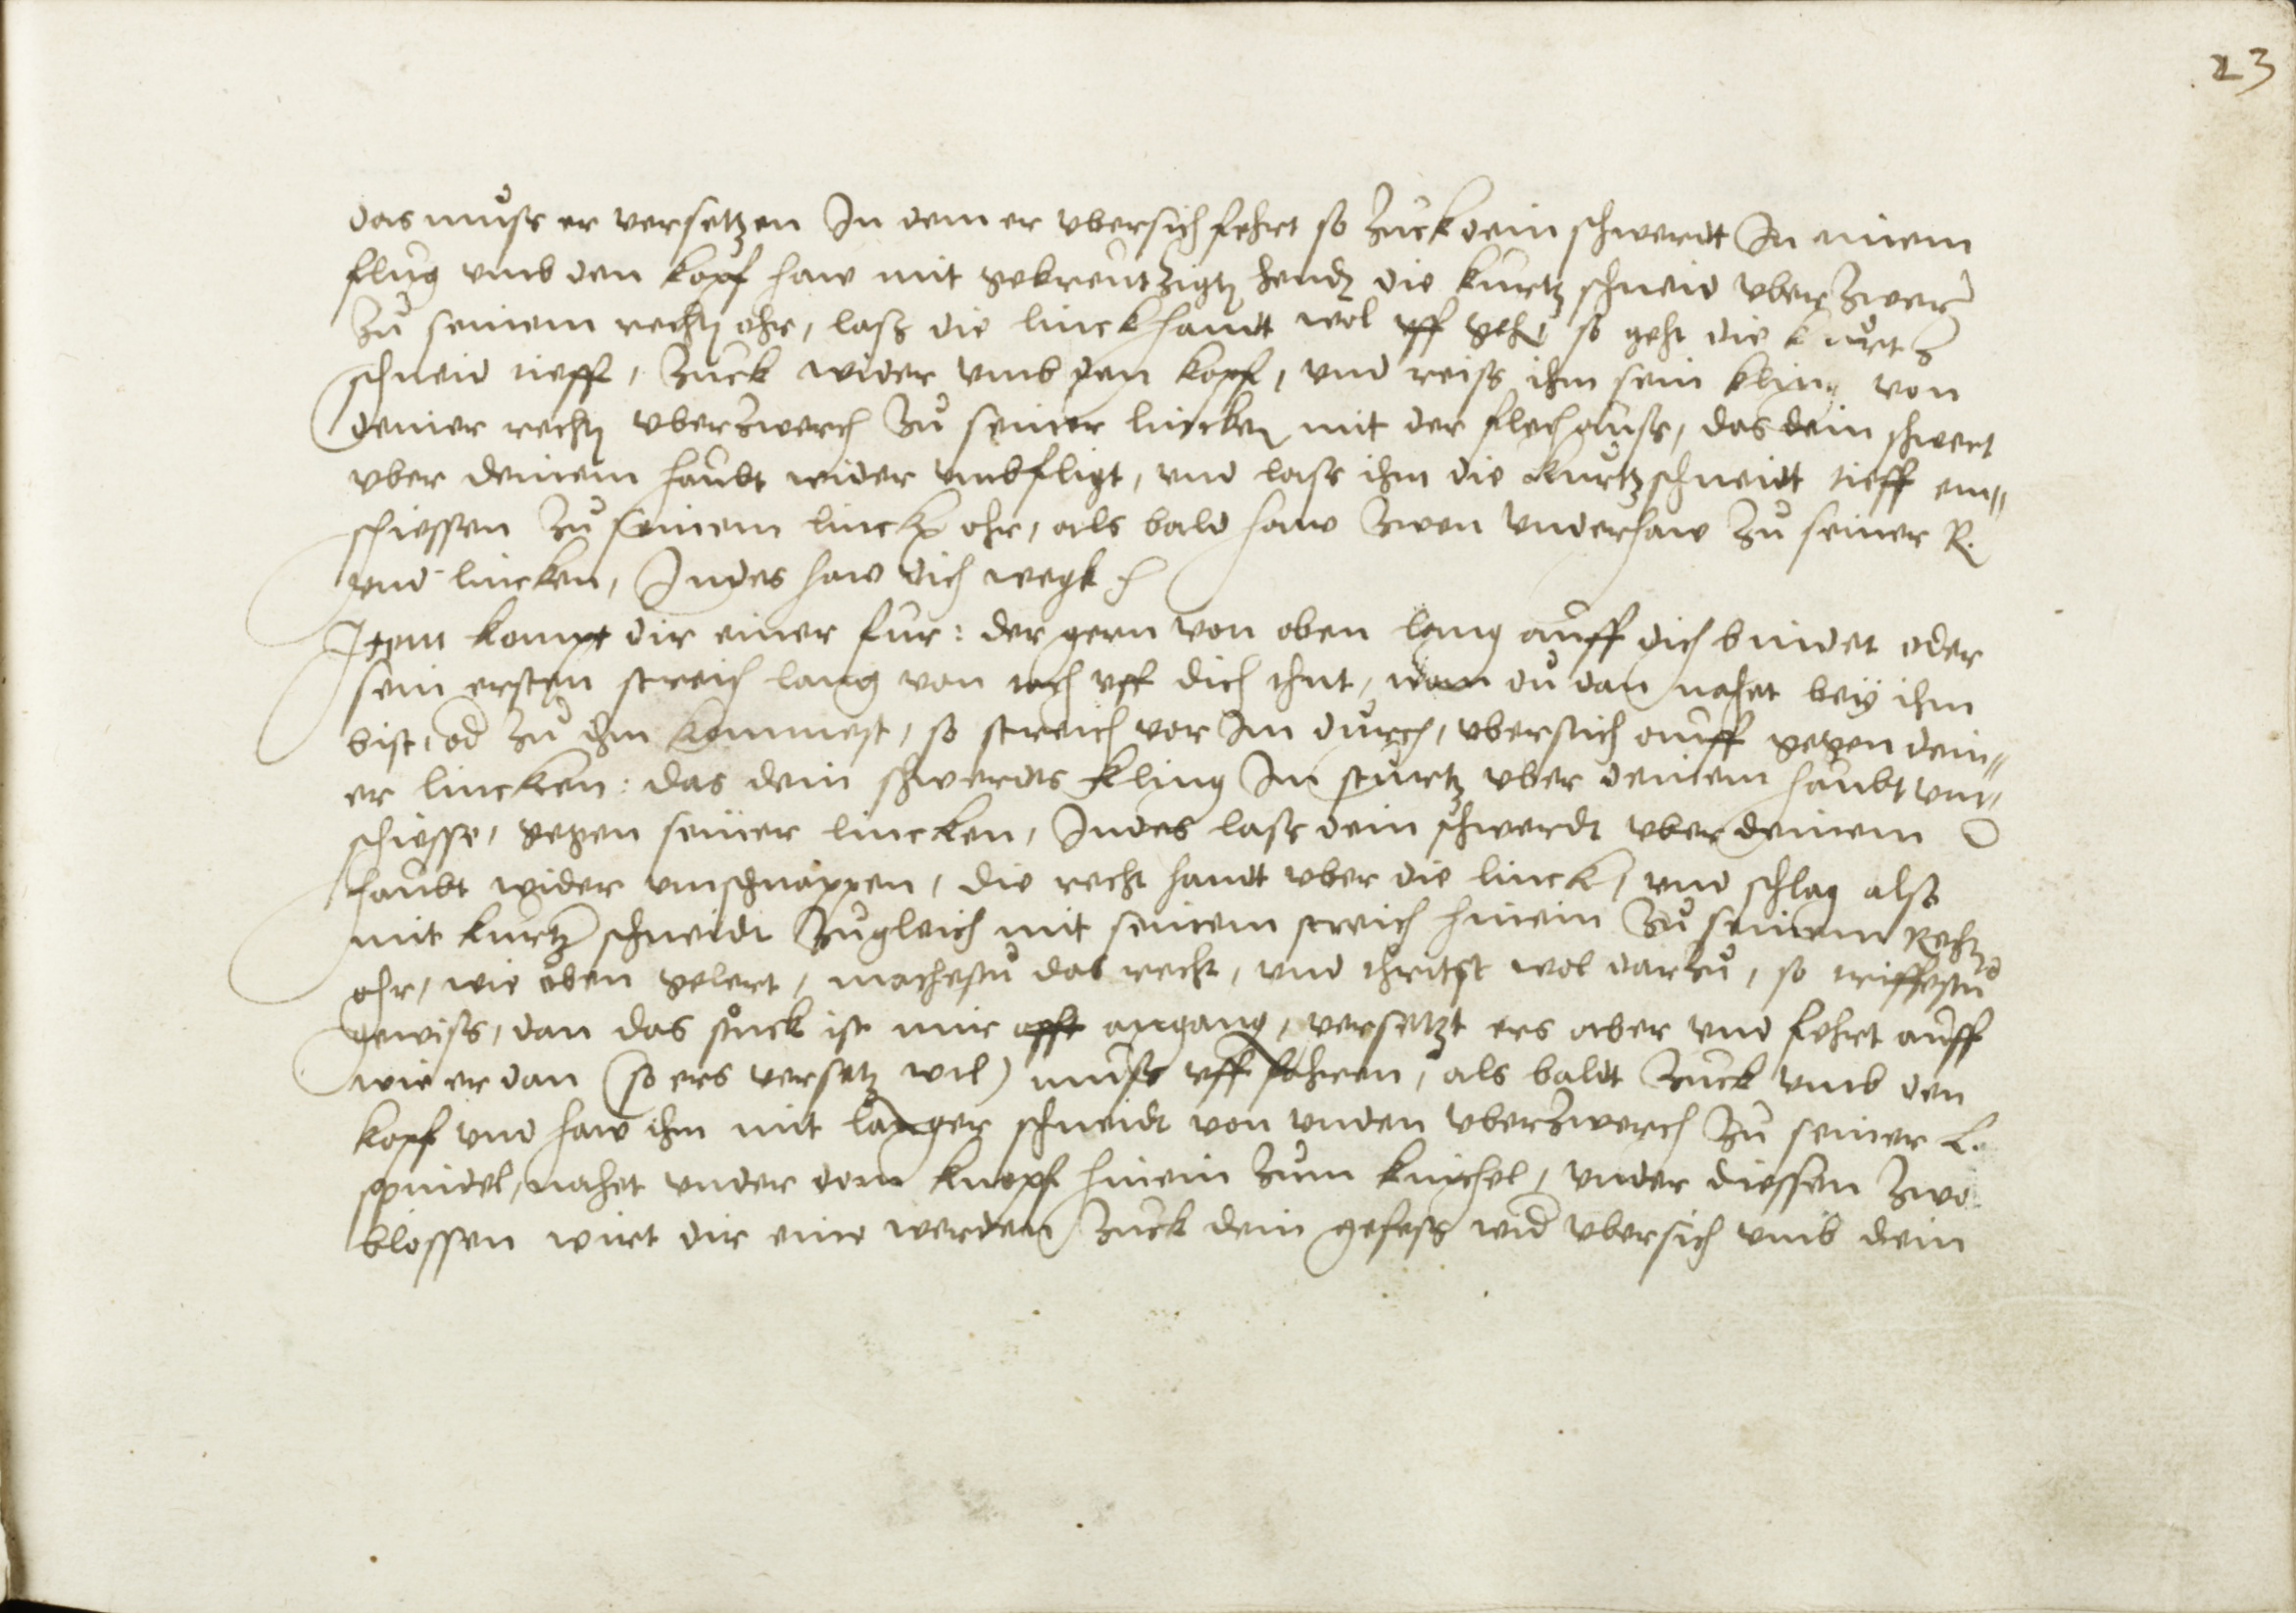 23
das muͦss er versetzen In dem er vbersich fehrt so zuck dein schwerdt In einem
flug vmb den kopf haw mit gekreutzigtē hendē die kurtz schneid vberzwer
zuͦ seinem rechtē ohr, lass die linck handt wol vff gehē so geht die kuͦrtz
schneid tieff, zuck wider vmb den kopf, vnd reiss ihm sein kling von
deiner rechtē vberzwerch zuͦ seiner lincken mit der flech auss, das dein schwert
vber deinem haubt wider vmbfligt, vnd lass ihm die kurtz schneidt tieff ein„
schiessen zuͦ seinem linckē ohr, als bald haw zwen vnderhaw zuͦ seiner R.
vnd lincken, Indes haw dich wegk
Item kompt dir einer fur: der gern von oben lang auff dich bindet oder
sein ersten streich lang von tach vff dich thut, wan duͦ dan nahet beÿ ihm
bist, od zuͦ ihm kommest, so streich vor Im durch, vbersich auff gegen dein„
er lincken: das dein schwerdes kling Im sturtz vber deinem haubt vmb„
schiesse, gegen seiner lincken, Indes lass dein schwerdt vber deinem
haubt wider vmschnappen, die recht handt vber die linck, vnd schlag also
mit kurtz schneidt zugleich mit seinem streich hinein zuͦ seinem Rechtē
ohr, wie oben gelert, machestuͦ das recht, vnd thritst wol darzuͦ, so triffestuͦ
gewiss, dan das stuͦck ist mir offt angang, versetzt ers aber vnd fehrt auff
wie er dan (so ers versetz wil) muͦss vff fahren, als baldt zuck vmb den
kopf vnd haw ihm mit langer schneidt von vnden vberzwerch zuͦ seiner L.
spindel, nahet vnder dem knopf hinein zum knichel, vnder diessen zwo
blossen wirt dir eine werden zuck dein gefess wid vbersich vmb dein